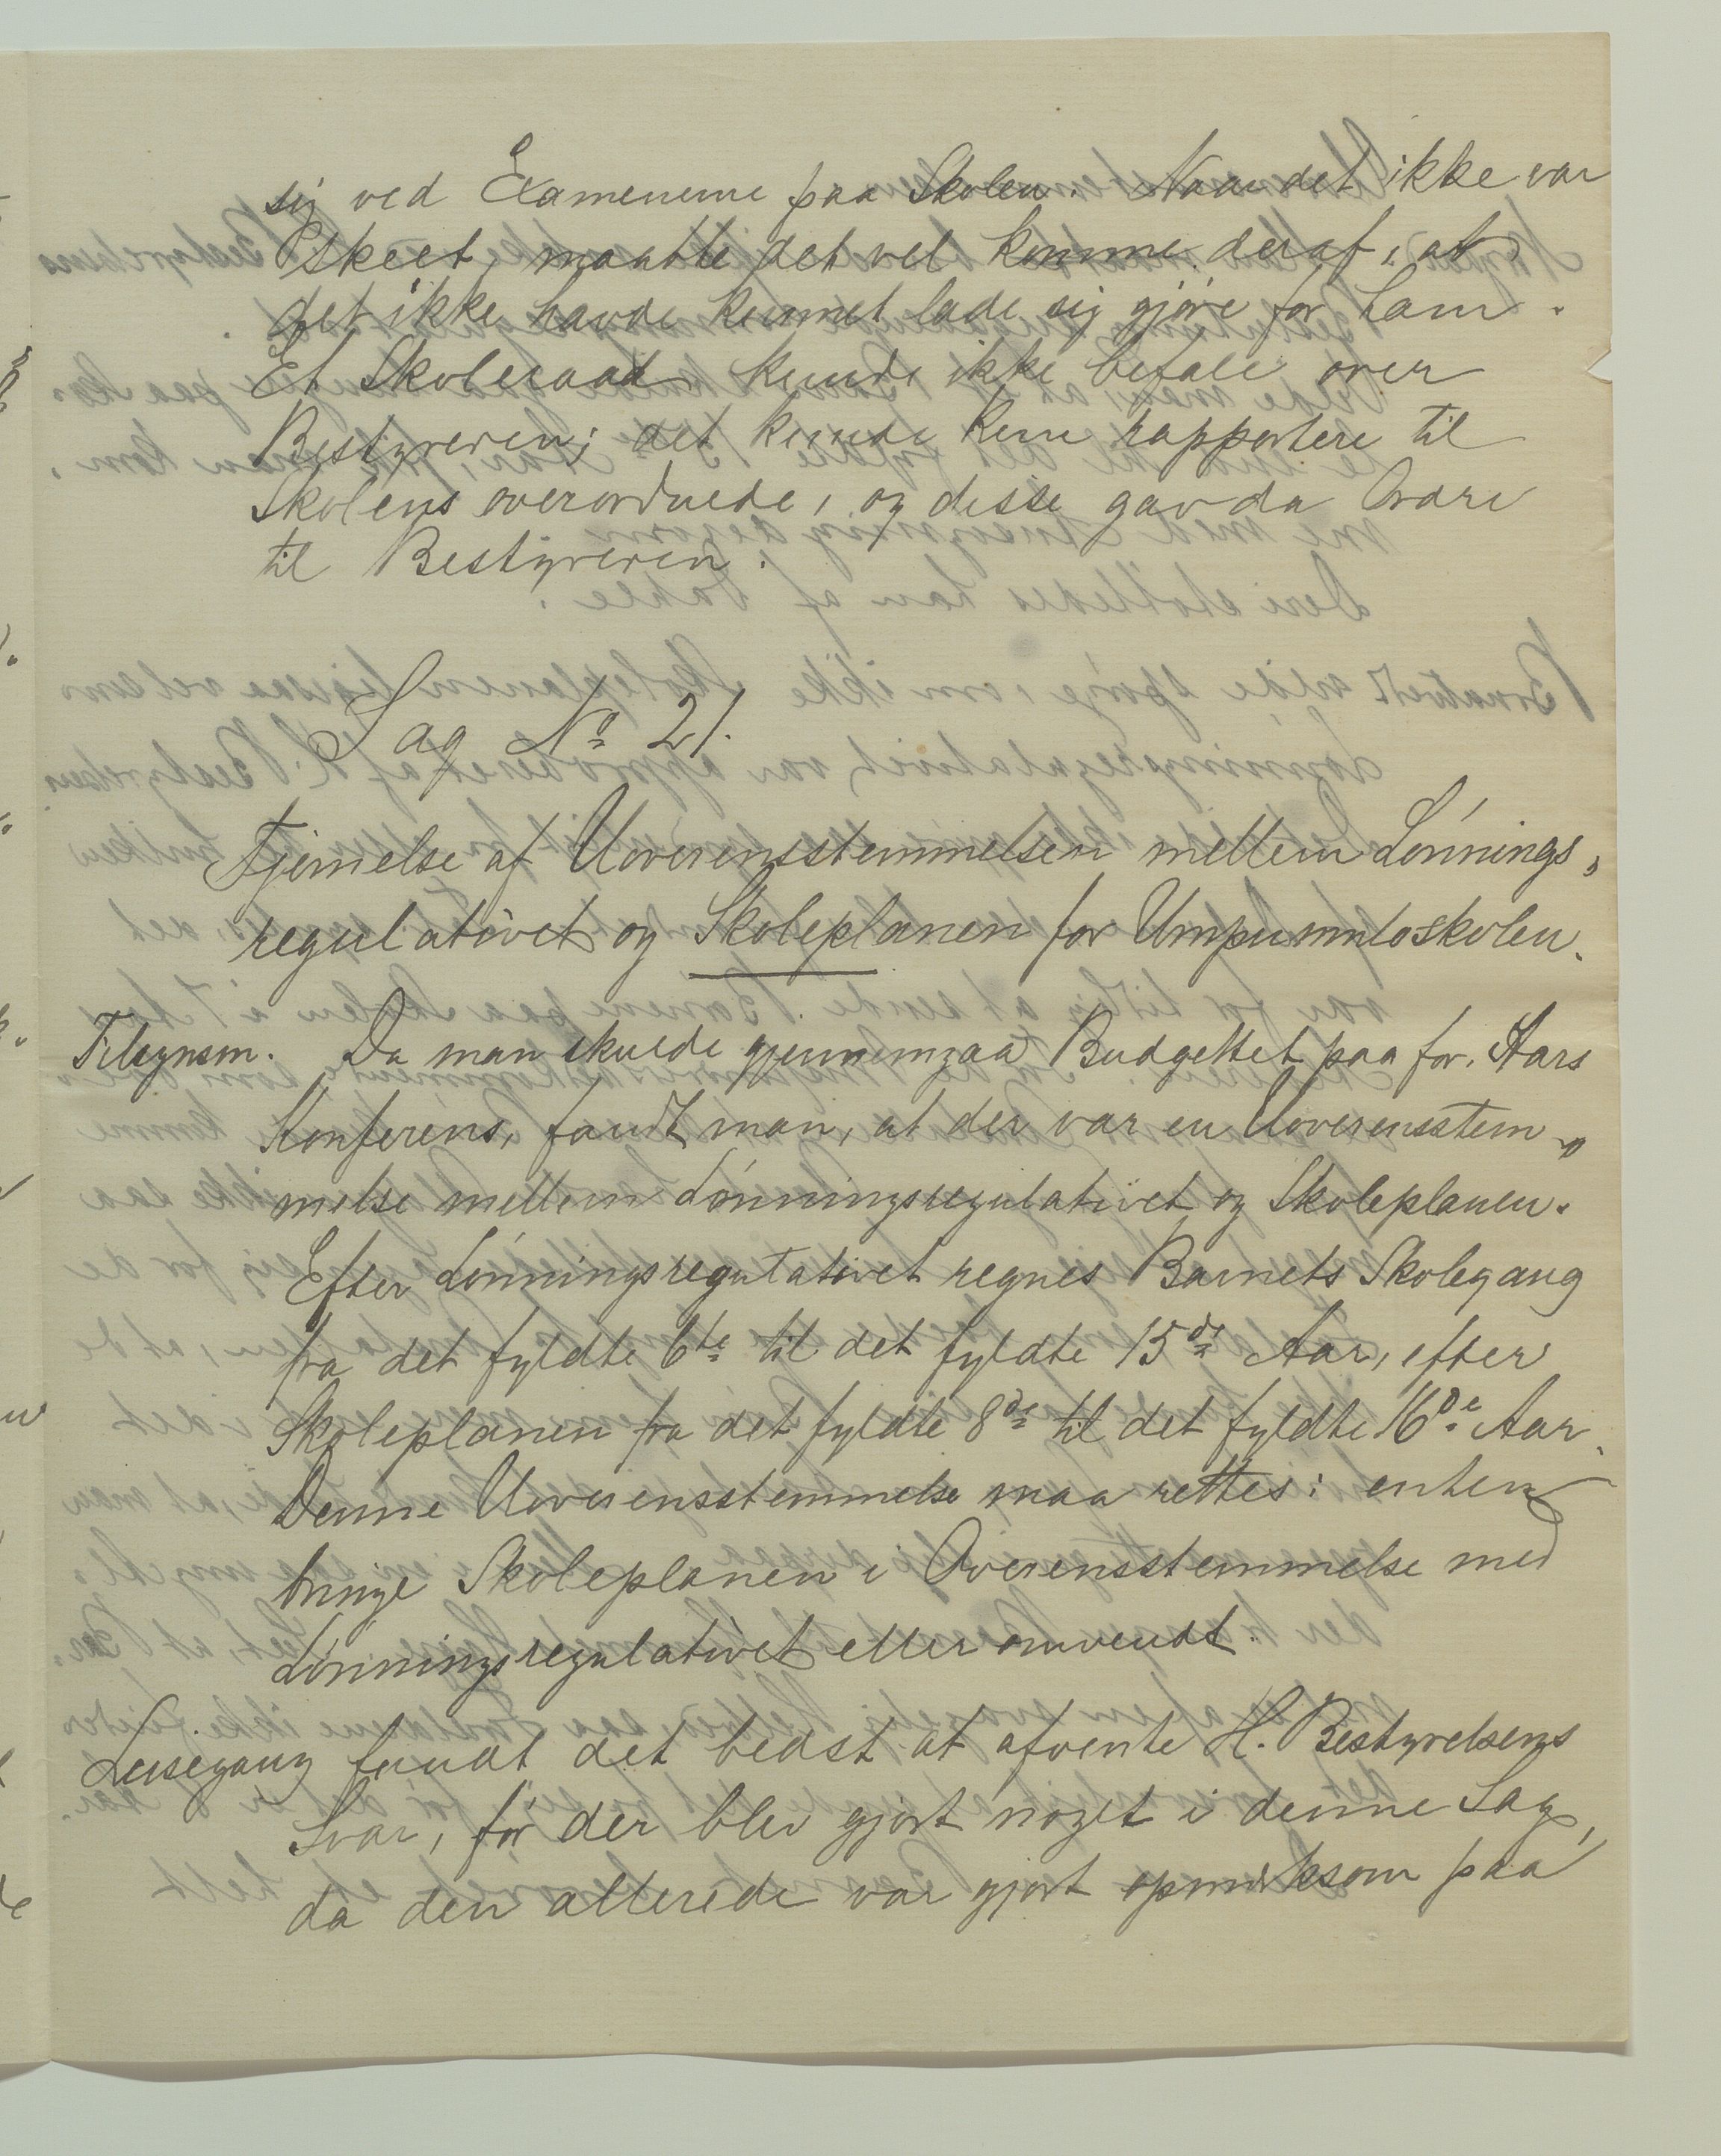 sig ved Examenerne paa Skolen. Naar det ikke var
skeet, maatte det vel komme deraf, at
det ikke havde kunnet lade sig gjöre for ham.
Et Skoleraad kunde ikke befale over
Bestyreren; det kunde kun rapportere til
Skolens overordnede, og disse gav da Ordre
til Bestyreren.
Sag No 21.
Fjernelse af Uoverensstemmelsen mellem Lönnings,
regulativet og Skoleplanen for Umpumuloskolen.
Tilsynsm. Da man skulde gjennemgaa Budgettet paa for. Aars
Konferens, fandt man, at der var en Uoverensstem-
melse mellem Lönningsregulativet og Skoleplanen.
Efter Lönningsregulativet regnes Barnets Skolegang
fra det fyldte 6te til det fyldte 15de Aar, efter
Skoleplanen fra det fyldte 8de til det fyldte 16de Aar.
Denne Uoverensstemmelse maa rettes: enten
bringe Skoleplanen i Overensstemmelse med
Lönningsregulativet eller omvendt.
Leisegang fandt det bedst at afvente H. Bestyrelsens
Svar, för der blev gjort noget i denne Sag,
da den allerede var gjort opmerksom paa